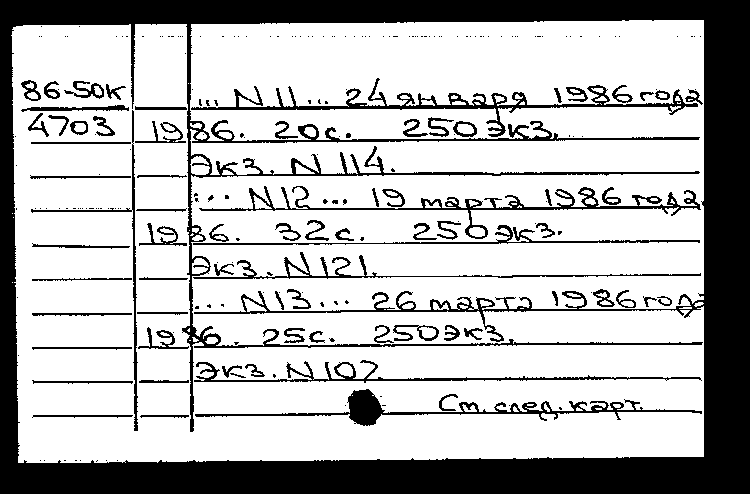 86-50к ... N 11 ... 24 января 1986 года
4703 1986. 20с. 250 экз.
Экз. N 114.
... N12 ... 19 марта 1986 года.
1986. 32с. 250 экз.
Экз. N 121.
... N13 ... 26 марта 1986 года
1986. 25с. 250 экз.
Экз. N 107.
См. след. карт.